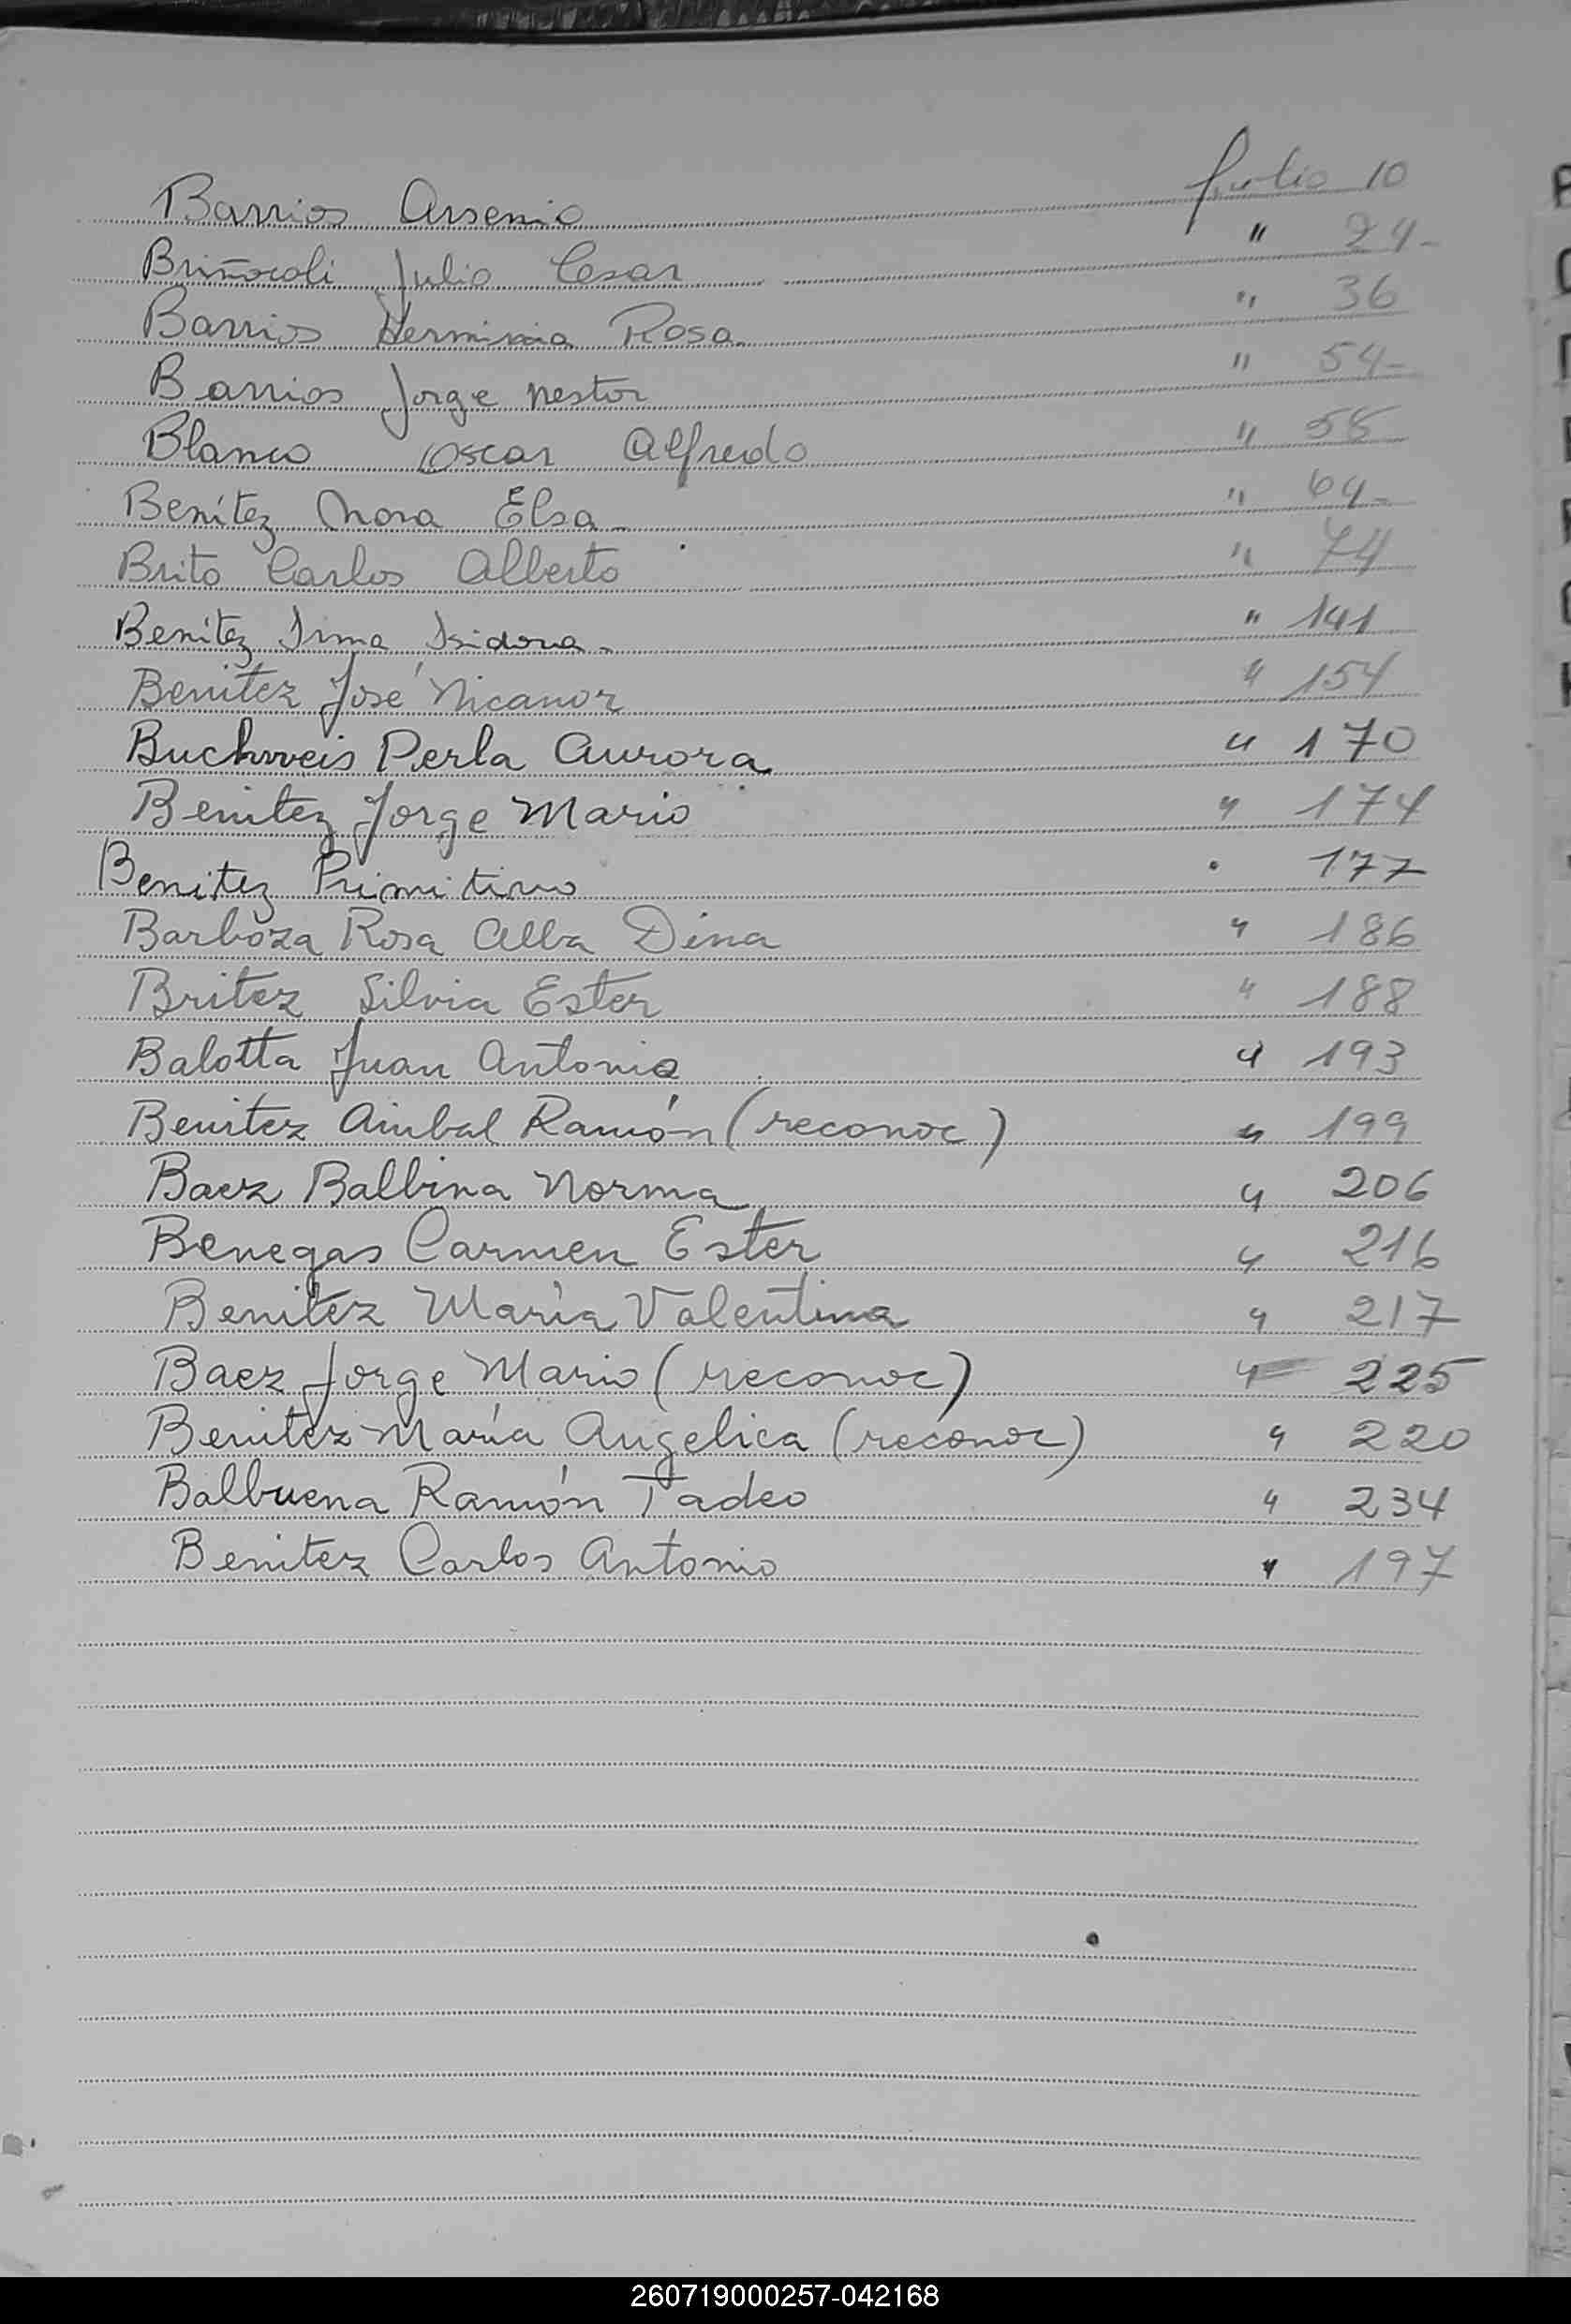 Barrios Arsenio folio 10
Briñocoli Julio Cesar " 24-
Barrios Herminia Rosa " 36
Barrios Jorge nestor " 54-
Blanco Oscar Alfredo " 58
Benítez Nora Elsa - " 64-
Brito Carlos Alberto " 74
Benítez Irma Isidora - " 141
Benitez José Nicanor " 154
Buchweis Perla Aurora " 170
Benitez Jorge Mario " 174
Benitez Primitivo " 177
Barboza Rosa Alba Dina " 186
Britez Silvia Ester " 188
Balotta Juan Antonio " 193
Benitez Anibal Ramón (reconoc) " 199
Baez Balbina Norma " 206
Benegas Carmen Ester " 216
Benitez María Valentina " 217
Baez Jorge Mario (reconoc) " 225
Benitez María Angelica (reconoc) " 220
Balbuena Ramón Tadeo " 234
Benitez Carlos Antonio " 197
260719000257-042168